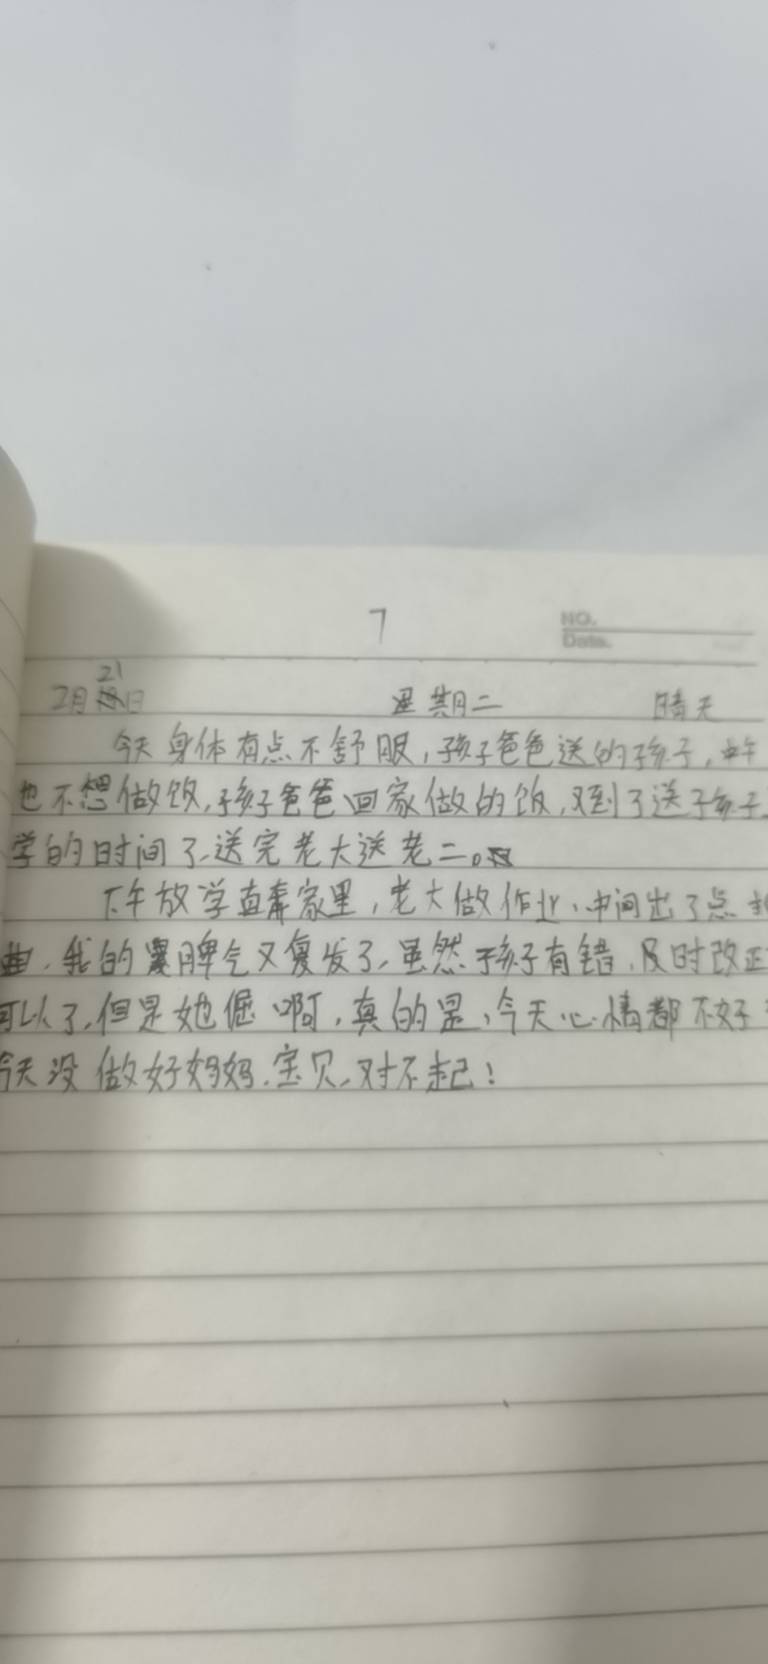 7
NO.
Date.
2月21日 星期二 晴天
今天身体有点不舒服,孩子爸爸送的孩子,中午
也不想做饭,孩子爸爸回家做的饭,又到了送孩子上
学的时间了,送完老大送老二。
下午放学直奔家里,老大做作业,中间出了点
曲,我的暴脾气又复发了,虽然孩子有错,及时改正
可以了,但是她倔啊,真的是,今天心情都不好
今天没做好妈妈,宝贝,对不起!